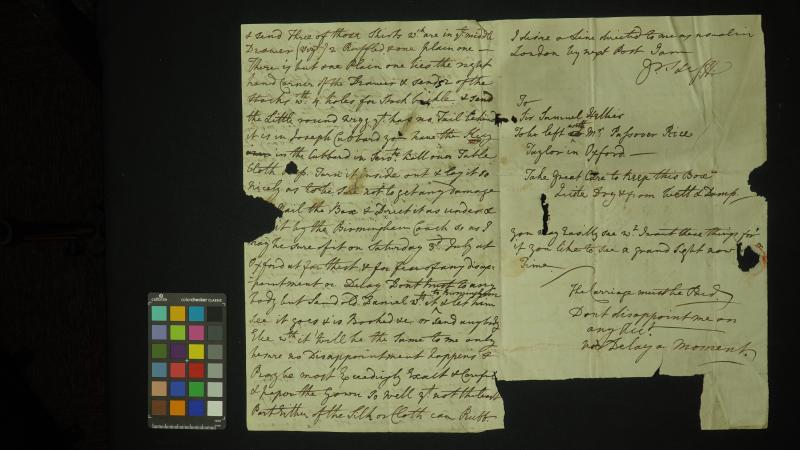 & send Three of those Shirts wch are in ye middle
Drawer (Viz:) 2 Ruffled & one plain one —
There is but one Plain one lies the right
hand Corner of the Drawer & send 2 of the
Stocks wth 4 holes for Stock buckle & send
the Little round Wigg yt has no Tail behind
it is in Joseph Cubbard you have the Key
in the Cubbard in
Cloth up. Turn it inside out & lay it so
nicely as to be sure not to get any damage
Nail the Box & Direct it as under &
it by the Birmingham Coach so as I
may be sure of it on Saturday 3d July at
Oxford at for thest & for fear of any disap
pointment or Delay Dont trust to any
body but Send Old Daniel wth it to Birmingham & let him
See it goes & is Booked &c or Send anybody
Else wth it will be the same to me only
be sure no Disappointment happens &
Pray be most Exceedingly Exact & Carefull
& paper the Gown So well yt not the least
Part Either of the Silk or Cloth can Rubb.
I desire a Line directed to me as usual in
London by next Post I am
To
Sir Samuel
To be left with Mr Passover Rice
Taylor in Oxford —
Take Great Care to keep this Box
Quite Dry & from Wett & Damp
you may Easily see wt I want these things for
if you like to see a grand Sight now
Time
The Carriage must be Paid
Dont disappoint me on
any Acct.
nor Delay a Moment.